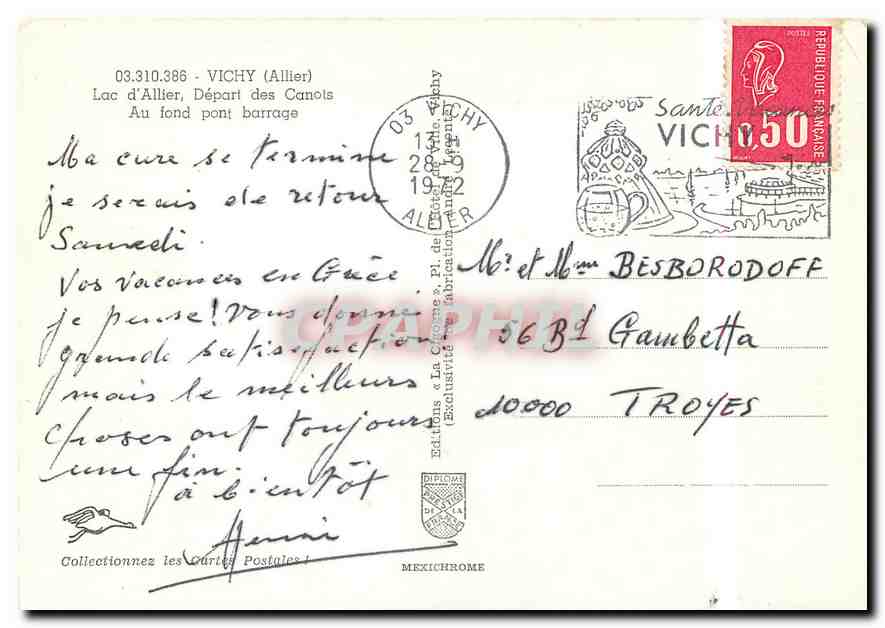 03.310.386 - VICHY (Allier)
Lac d'Allier, Départ des Canots
Au fond pont barrage
Ma cure se termine
je serais de retour
Samedi.
Vos vacances en Grèce
je pense! Vous donné
grande satisfaction
mais le meilleurs
choses ont toujours
une fin.
à bientôt
Henri
Collectionnez les Cartes Postales!
Editions « La Cigogne », Pl. de l'Hôtel de Ville, Vichy
(Exclusivité fabrication André Leconte)
DIPLOME
PRESTIGE
DE LA
FRANCE
MEXICHROME
03 VICHY
28-9
ALLIER
Santé
VICHY
POSTES
REPUBLIQUE FRANÇAISE
0,50
Mr et Mme BESBORODOFF
56 Bd Gambetta
10000 TROYES
CPAPHIL